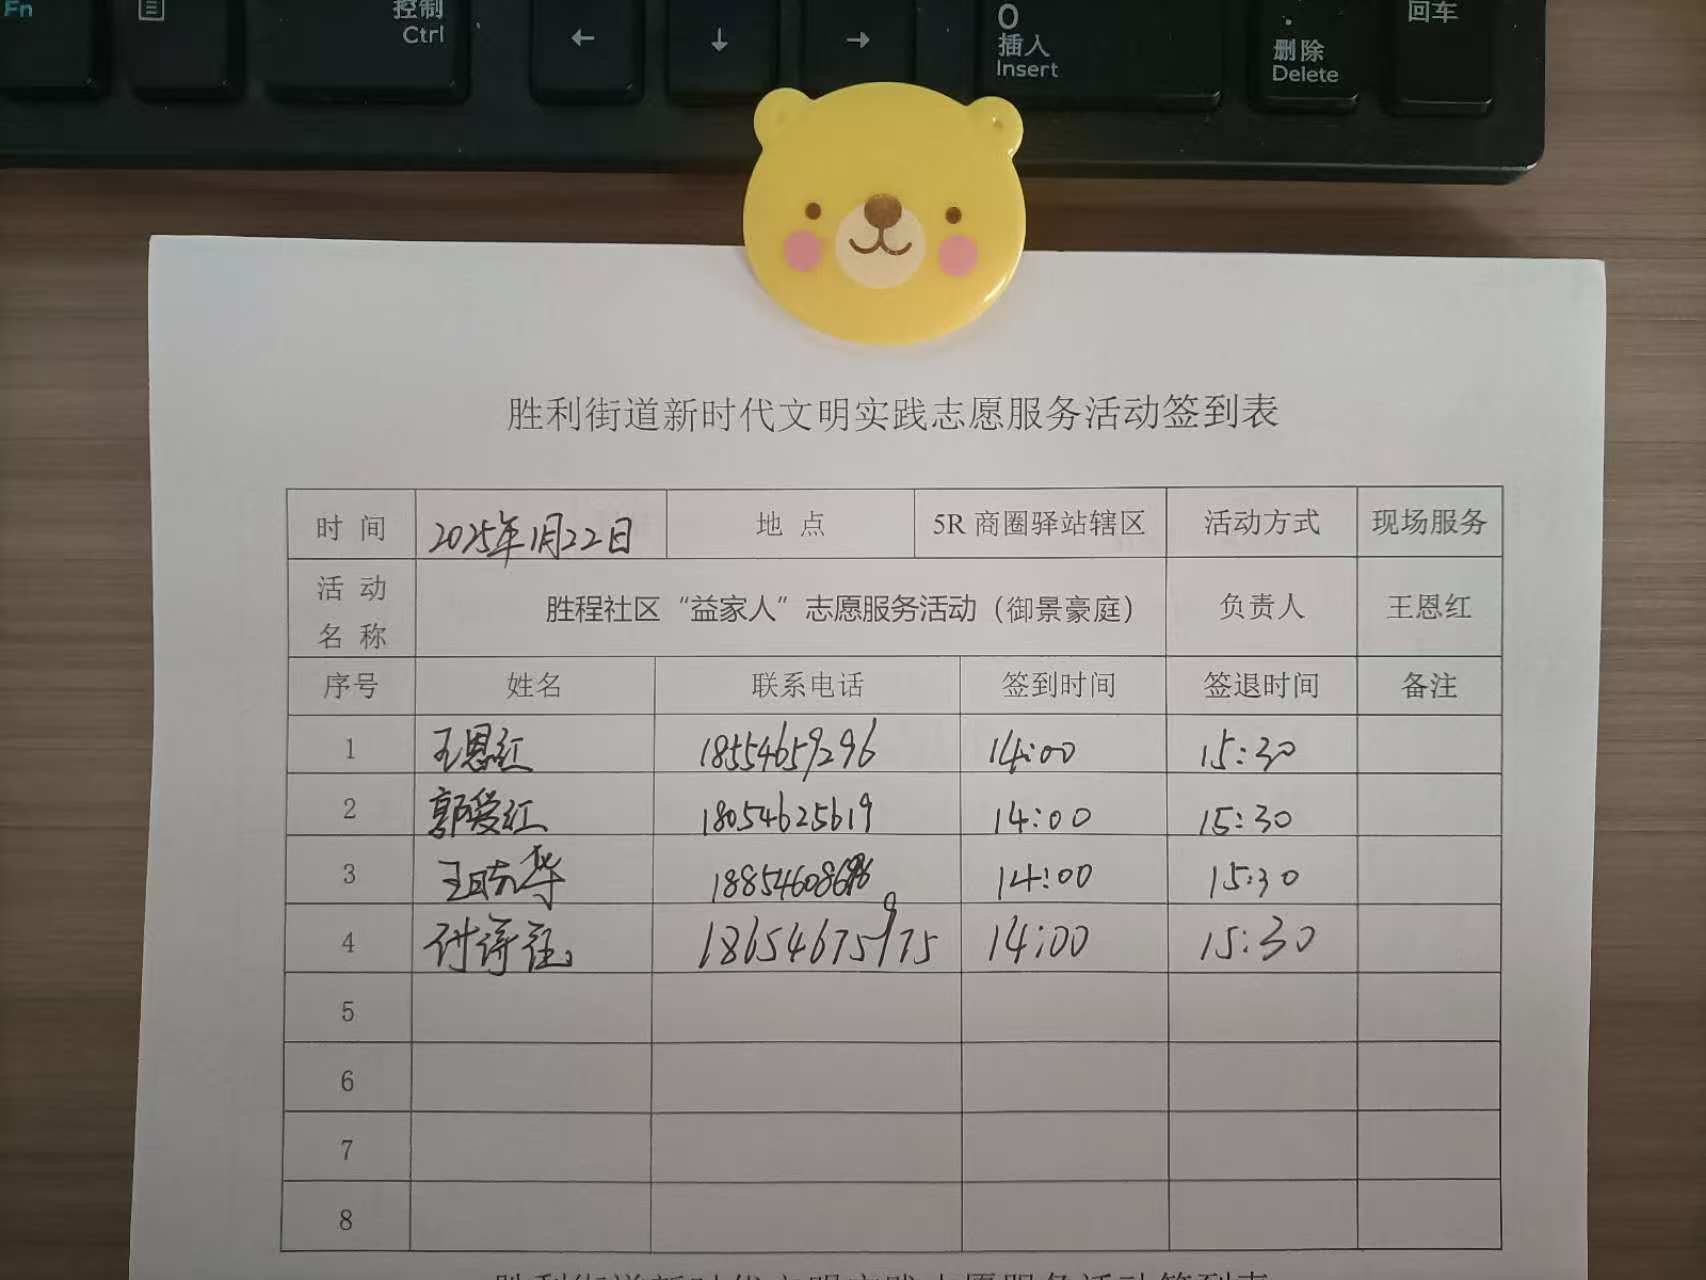 Fn
控制
Ctrl
←
↓
→
0
插入
Insert
.
删除
Delete
回车
胜利街道新时代文明实践志愿服务活动签到表
时 间 2025年1月22日 地 点 5R 商圈驿站辖区 活动方式 现场服务
活 动
名 称 胜程社区“益家人”志愿服务活动（御景豪庭） 负责人 王恩红
序号 姓名 联系电话 签到时间 签退时间 备注
1 王恩红 18554659296 14:00 15:30
2 郭爱红 18054625619 14:00 15:30
3 王晓华 14:00 15:30
4 18654675975 14:00 15:30
5
6
7
8
胜利街道新时代文明实践志愿服务活动签到表